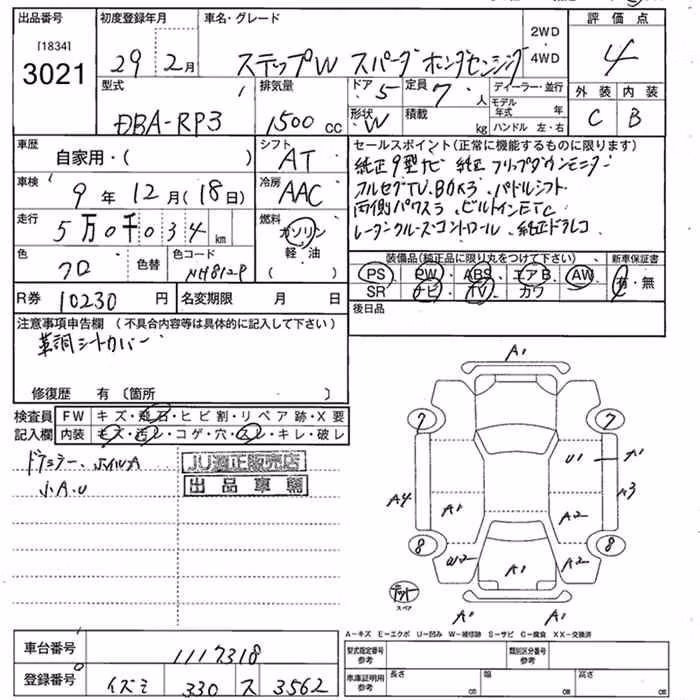 出品番号 初度登録年月 車名・グレード 評価点
[1834]
3021 29 年 2月 ステップW スパーダ ホンダセンシング 2WD ・ 4WD 4
型式 排気量 ドア 5 定員 7 人 ディーラー・並行 外装 内装
DBA-RP3 1500 cc 形状 W 積載 kg モデル年式 年 ハンドル 左・右 C B
車歴 自家用・( ) シフト AT セールスポイント(正常に機能するものに限ります)
純正9型ナビ 純正フリップダウンモニター
車検 9年 12月(18日) 冷房 AAC フルセグTV.Bカメラ.パドルシフト
両側パワスラ.ビルトインETC
走行 5万0千034 km 燃料 ガソリン・軽油( ) レーダークルーズコントロール.純正ドラレコ
色 クロ 色替 色コード NH812P 装備品(純正品に限り丸をつけて下さい) 新車保証書
PS・PW・ABS・エアB・AW 有・無
SR ナビ・TV・カワ
R券 10230 円 名変期限 月 日 後日品
注意事項申告欄 (不具合内容等は具体的に記入して下さい)
革調シートカバー
修復歴 有 〔箇所 〕
検査員記入欄 FW キズ・飛石・ヒビ割・リペア跡・X要
内装 キズ・汚レ・コゲ・穴・スレ・キレ・破レ
JU適正販売店
出品車輌
A1
7 7
U1 A1
A4 A1 A2 A3
8 W2 A1 A2 8
スペア
A1 A1
A-キズ E-エクボ U-凹み W-補修跡 S-サビ C-腐食 XX-交換済
車台番号 1117318 型式指定番号 参考 類別区分番号 参考
登録番号 イズミ 330 ス 3562 車庫証明用 参考 長さ cm 幅 cm 高さ cm